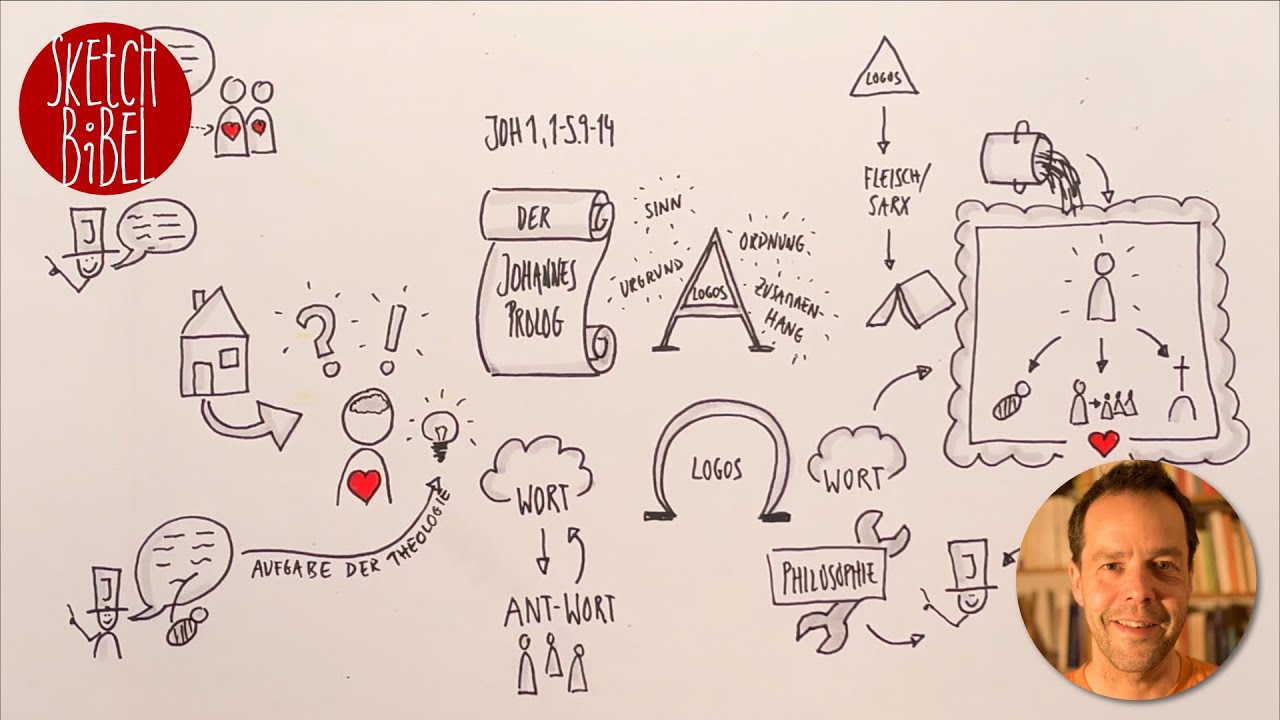 SKETCH
BIBEL
J
JOH 1, 1-5.9-14
DER
JOHANNES
PROLOG
SINN
URGRUND
LOGOS
ORDNUNG
ZUSAMMEN-
HANG
LOGOS
FLEISCH/
SARX
WORT
ANT-WORT
LOGOS
WORT
PHILOSOPHIE
J
J
AUFGABE DER THEOLOGIE